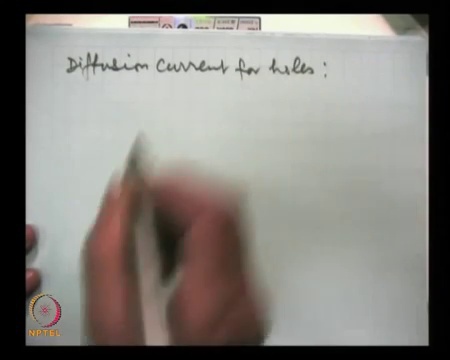 Diffusion Current for holes :
NPTEL